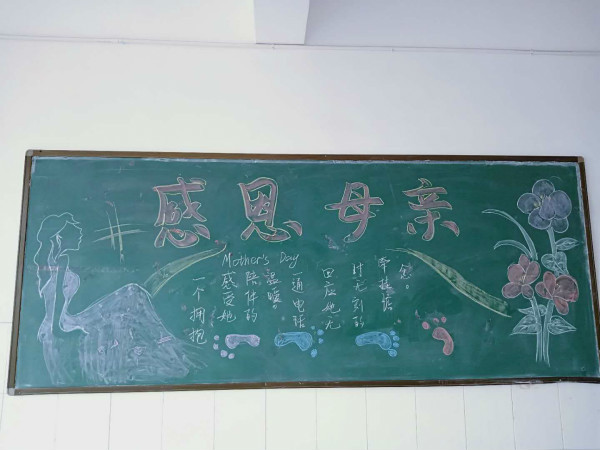 感恩母亲
Mother's Day
一个拥抱
感受她
陪伴的
温暖。
一通电话
回应她无
时无刻的
牵挂惦